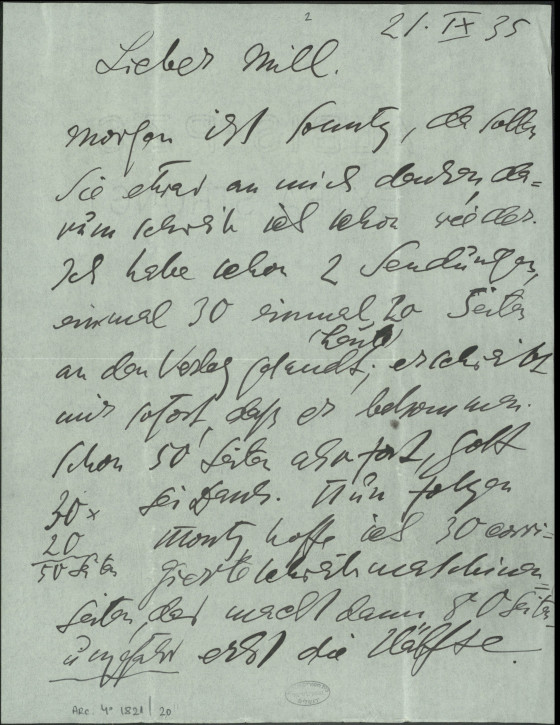 2
21. IX 35
Lieber Mill.
morgen ist Sonntg, da sollen
Sie etwas an mich denken, da=
rum schreib ich schon wieder.
Ich habe schon 2 Sendungen,
einmal 30 einmal 20 Seiten
(heute)
an den Verlag gesandt; er schreibt
mir sofort, daß er bekommen.
schon 50 Seiten also fort, gott
sei Dank. Nun folgen
30 x
Montg hoffe ich 30 corri=
20
50 Seiten
gierte schreibmaschinen=
seiten, das macht dann 80 Seiten
ungefähr erst die Hälfte.
ARC. 4° 1821 / 20